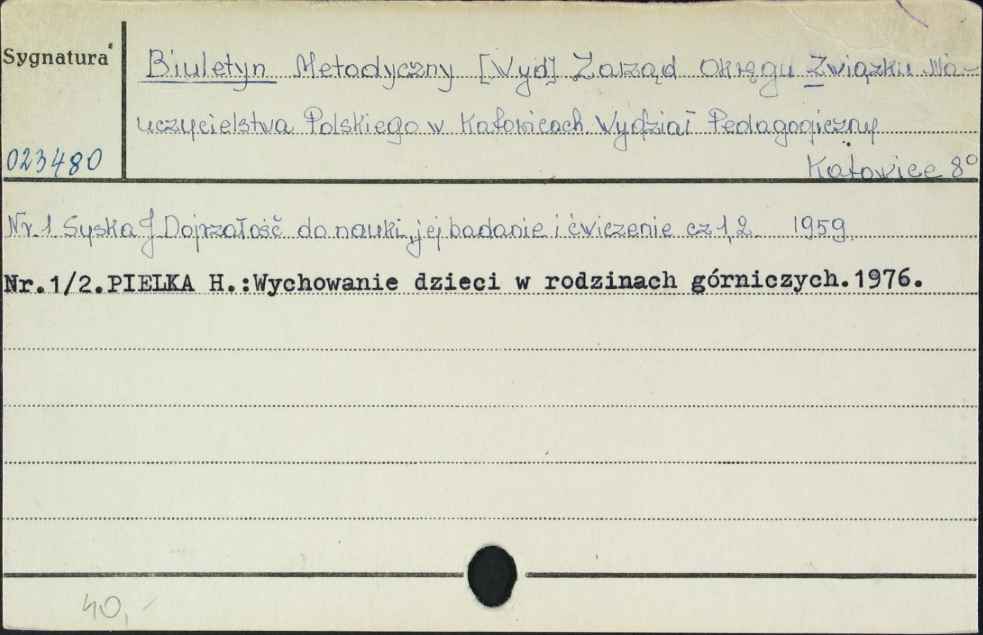 Sygnatura
Biuletyn Metodyczny [Wyd] Zarząd Okręgu Związku Na-
uczycielstwa Polskiego w Katowicach Wydział Pedagogiczny
023480
Katowice 8°
Nr. 1 Syska J Dojrzałość do nauki, jej badanie i ćwiczenie cz 1, 2 1959
Nr.1/2.PIELKA H.:Wychowanie dzieci w rodzinach górniczych.1976.
40,-